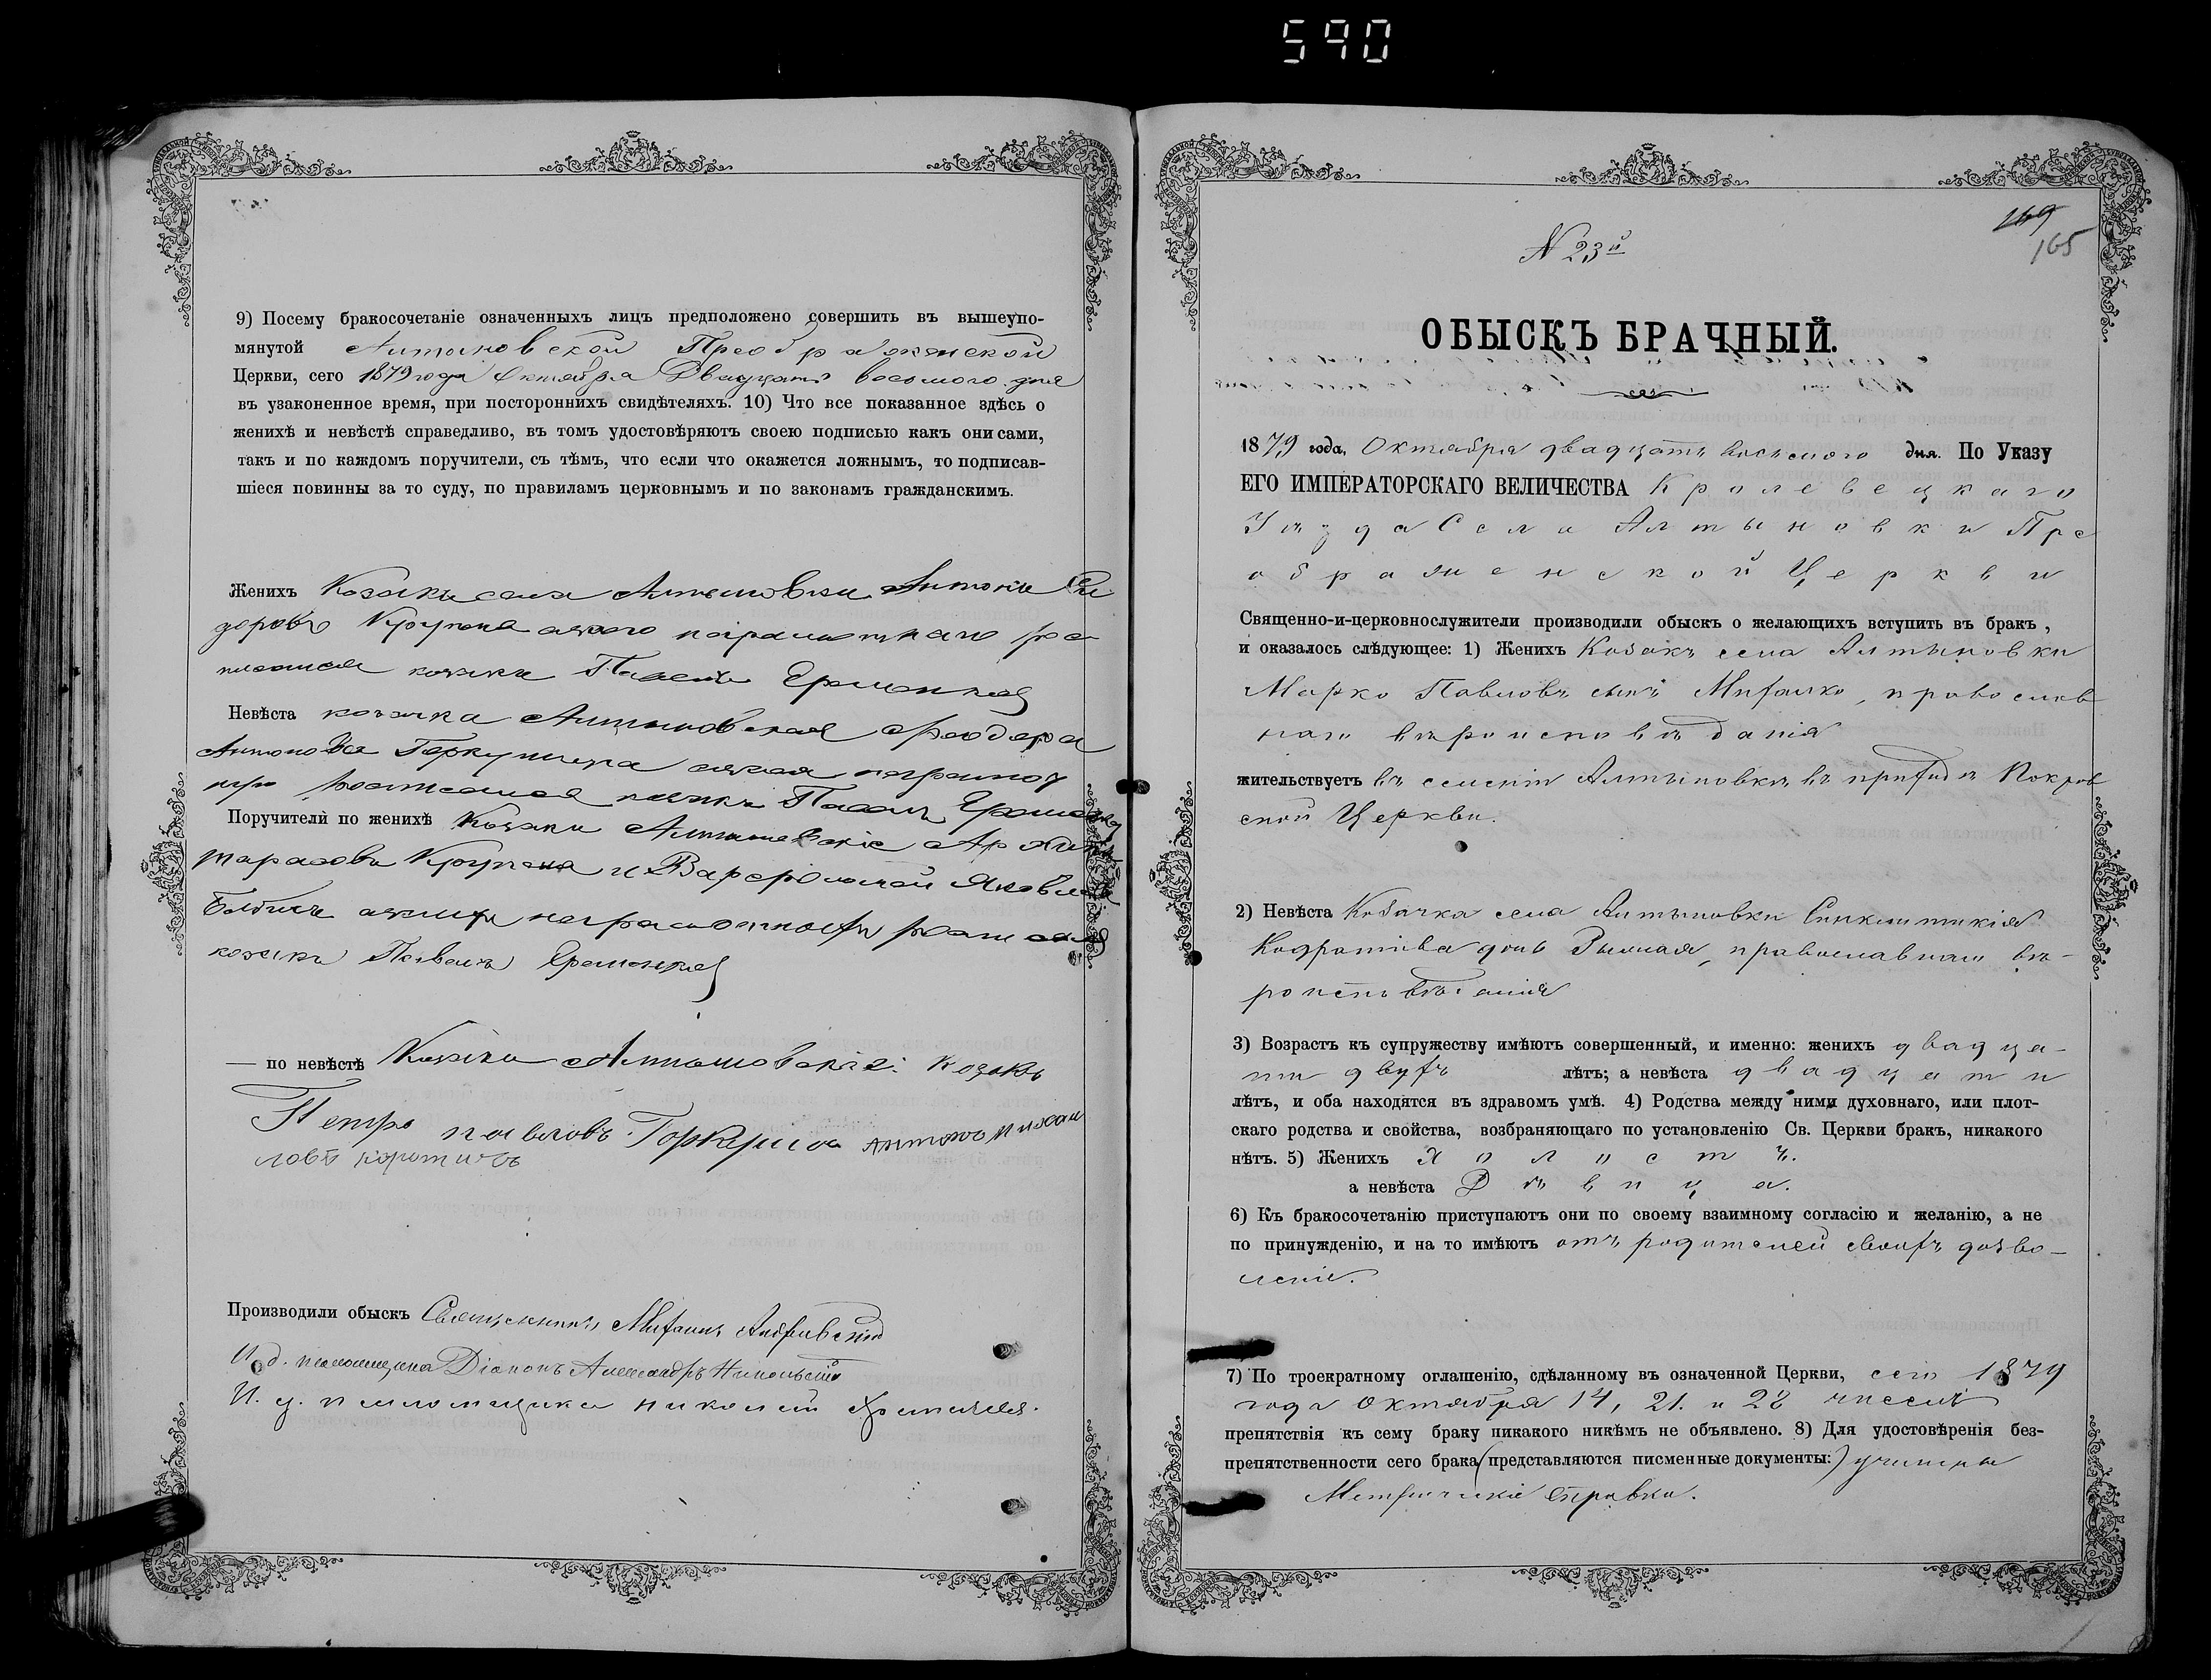 590
9) Посему бракосочетаніе означенныхъ лицъ предположено совершить въ вышеупо-
мянутой Алтыновской Преображенской
Церкви, сего 1879 года Октября Двадцать восьмого дня
въ узаконенное время, при постороннихъ свидѣтеляхъ. 10) Что все показанное здѣсь о
женихѣ и невѣстѣ справедливо, въ томъ удостовѣряютъ своею подписью какъ они сами,
такъ и по каждомъ поручители, съ тѣмъ, что если что окажется ложнымъ, то подписав-
шіеся повинны за то суду, по правиламъ церковнымъ и по законамъ гражданскимъ.
Женихъ Козакъ села Алтыновки Антоній Си
доровъ неграмотнаго ро
писался козакъ Павелъ Ермонка
Невѣста козачка Алтыновская Феодора
Антонова Горкушина неграмот
козакъ Павелъ
Поручители по женихѣ Козаки Алтыновскіе
Тарасовъ и Варфоломей Яковлев
неграмотныхъ
козакъ Павелъ Ермонка
— по невѣстѣ Козаки Алтыновскіе: козакъ
Петро павловъ Горкуша антонъ михаи
ловъ коротичъ
Производили обыскъ Священникъ Михаилъ Андріевскій
И. д. псаломщика Діаконъ Александръ Никольскій
И. д. псаломщика николай
169
165
N 23й
ОБЫСКЪ БРАЧНЫЙ.
1879 года, Октября двадцать восьмого дня. По Указу
ЕГО ИМПЕРАТОРСКАГО ВЕЛИЧЕСТВА Кролевецкаго
Уѣзда Села Алтыновки Пре
ображенской Церкви
Священно-и-церковнослужители производили обыскъ о желающихъ вступить въ бракъ,
и оказалось слѣдующее: 1) Женихъ Козакъ села Алтыновки
Марко Павловъ сынъ Михалко, православ
наго вѣроисповѣданія
жительствуетъ въ селеніи Алтыновкѣ въ приходѣ Покров
ской Церкви.
2) Невѣста Козачка села Алтыновки Синклитикія
Кодратіева дочь Рымная, православнаго вѣ-
роисповѣданія
3) Возрастъ къ супружеству имѣютъ совершенный, и именно: женихъ двадца-
ти двухъ лѣтъ; а невѣста двадцати
лѣтъ, и оба находятся въ здравомъ умѣ. 4) Родства между ними духовнаго, или плот-
скаго родства и свойства, возбраняющаго по установленію Св. Церкви бракъ, никакого
нѣтъ. 5) Женихъ Холостъ.
а невѣста Дѣвица.
6) Къ бракосочетанію приступаютъ они по своему взаимному согласію и желанію, а не
по принужденію, и на то имѣютъ отъ родителей своихъ дозво-
леніе.
7) По троекратному оглашенію, сдѣланному въ означенной Церкви, сего 1879
года Октября 14, 21. и 28 числъ
препятствія къ сему браку никакого никѣмъ не объявлено. 8) Для удостовѣренія без-
препятственности сего брака (представляются писменные документы:) учинены
Метрическіе справки.